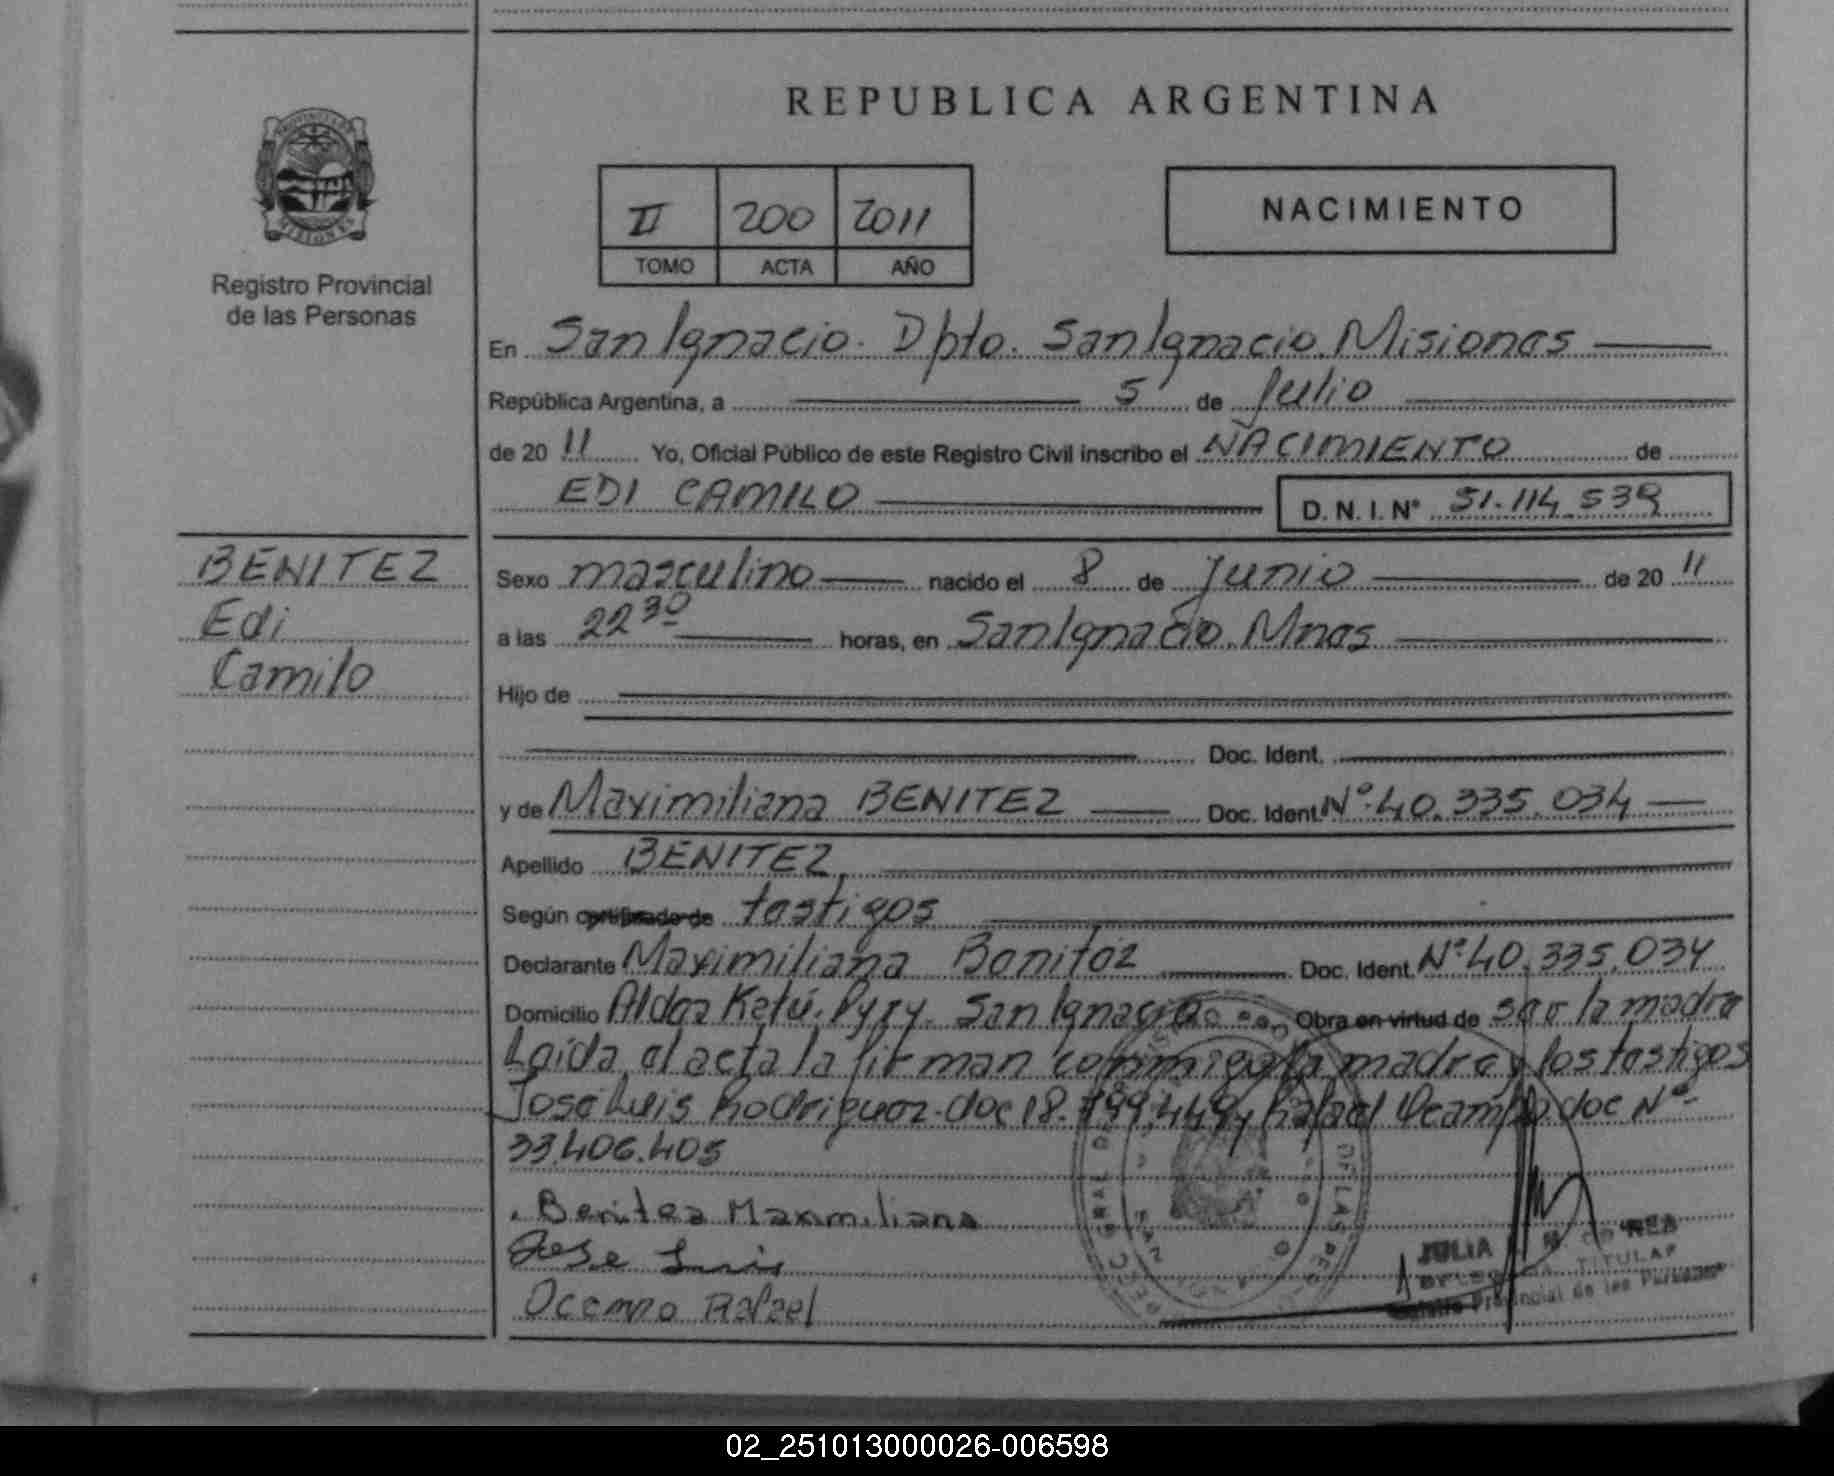 REPUBLICA ARGENTINA
PROVINCIA DE
MISIONES
Registro Provincial
de las Personas
II 200 2011
TOMO ACTA AÑO
NACIMIENTO
En San Ignacio. Dpto. San Ignacio. Misiones
República Argentina, a 5 de Julio
de 20 11 Yo, Oficial Público de este Registro Civil inscribo el NACIMIENTO de
EDI CAMILO D. N. I. N° 51.114.539
BENITEZ
Edi
Camilo
Sexo masculino nacido el 8 de Junio de 20 11
a las 22 30 horas, en San Ignacio. Mnes
Hijo de
Doc. Ident.
y de Maximiliana BENITEZ Doc. Ident N° 40.335.034
Apellido BENITEZ
Según certificado de testigos
Declarante Maximiliana Benitez Doc. Ident. N° 40.335.034
Domicilio Aldea Katú. Pyry. San Ignacio Obra en virtud de ser la madre
Leída el acta la firman conmigo la madre y los testigos
José Luis Rodriguez. doc 18.799.449 y Rafael Ocampo doc N°
33.406.405
Benitez Maximiliana
Jose Luis
Ocampo Rafael
JULIA
TITULAR
Registro Provincial de las Personas
02_251013000026-006598